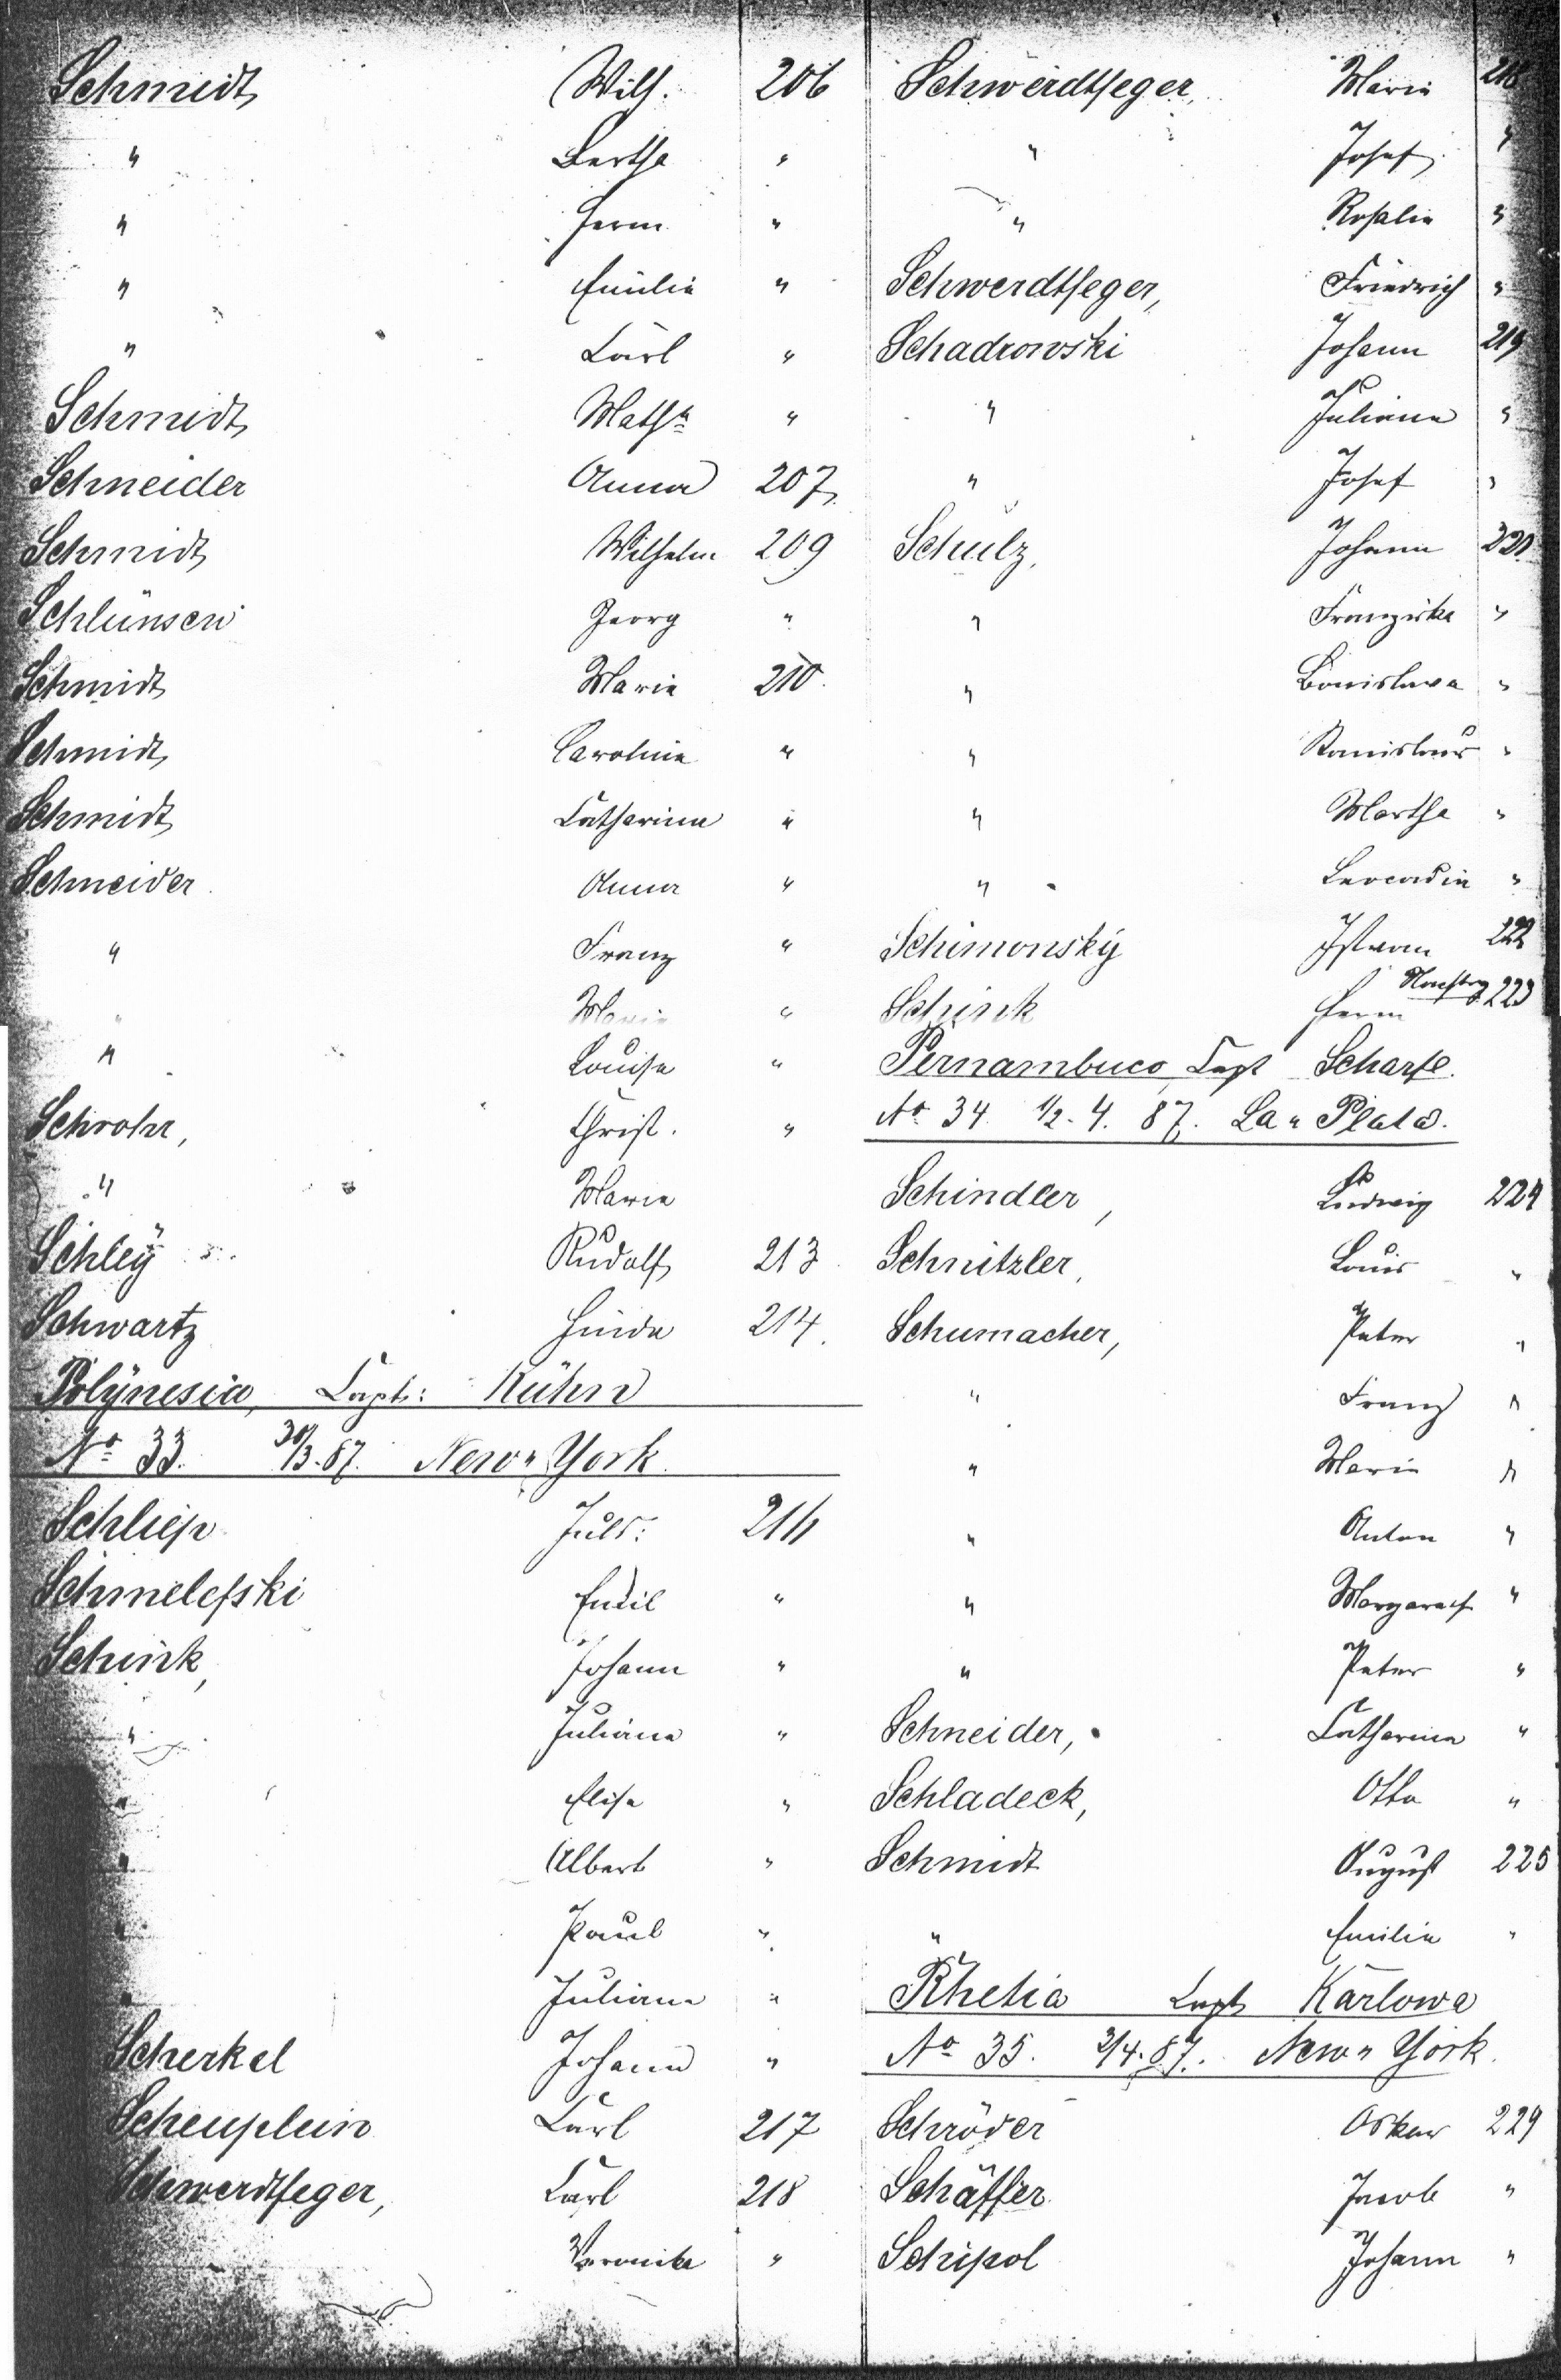 Schmidt Wilh. 206
" Bertha "
" Herm "
" Emilie "
" Carl "
Schmidt Maths "
Schneider Anna 207
Schmidt Wilhelm 209
Schlünsen Georg "
Schmidt Marie 210
Schmidt Caroline "
Schmidt Catharina "
Schneider Anna "
" Franz "
" Marie "
" Louise "
Schrohr, Christ. "
" Marie
Schley Rudolf 213
Schwartz Hinde 214
Polynesia, Capt: Kühn
No 33. 30/3.87. New-York
Schliep Juls: 216
Schmelefski Emil "
Schink, Johann "
" Juliane "
" Elise "
" Albert "
" Paul "
" Juliane "
Scherkel Johann "
Scheuplein Carl 217
Schwerdtfeger, Carl 218
Veronika "
Schwerdtfeger, Marie 218
" Josef "
" Rosalie "
Schwerdtfeger, Friedrich "
Schadrowski Johann 219
" Juliane "
" Josef "
Schulz, Johann 220
" Franziska "
" Bronislawa "
" Stanislaus "
" Martha "
" Leocadia "
Schimonsky Istvan 222
Schink Herm 223
Pernambuco, Capt Scharfe.
No 34 1/2.4.87. La-Plata.
Schindler, Ludwig 224
Schnitzler, Louis "
Schumacher, Peter "
" Franz "
" Marie "
" Anton "
" Margareth "
" Peter "
Schneider, Catharina "
Schladeck, Otto "
Schmidt August 225
" Emilie "
Rhetia Capt Karlowa
No 35. 3/4.87. New-York.
Schröder Oskar 229
Schäffer Jacob "
Schipol Johann "